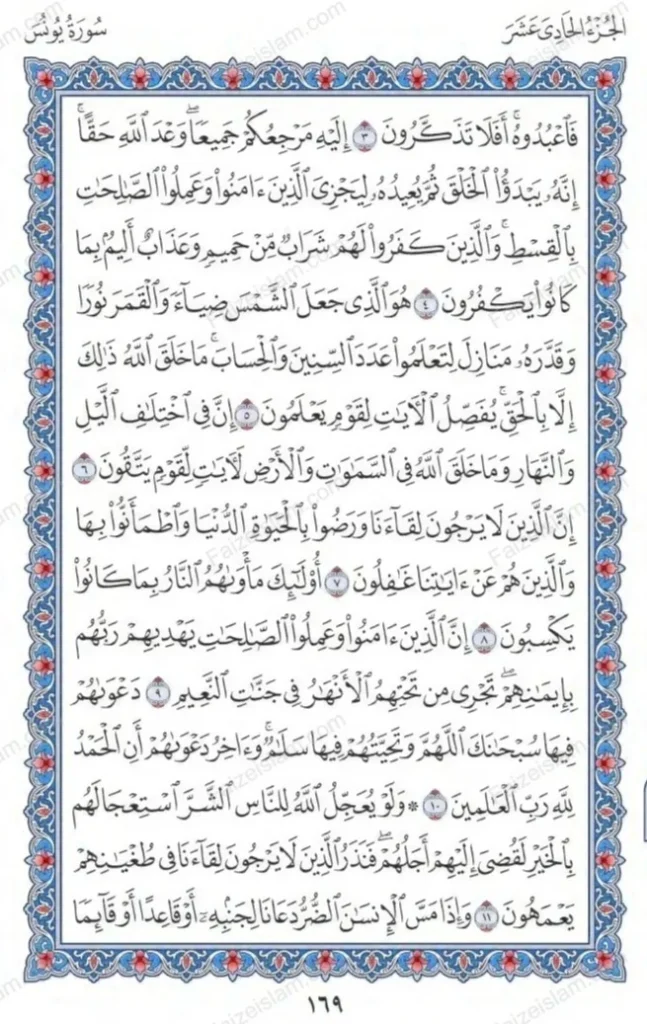 الجزء الحادى عشر
سورة يونس
فَٱعْبُدُوهُۚ أَفَلَا تَذَكَّرُونَ ٣ إِلَيْهِ مَرْجِعُكُمْ جَمِيعًاۖ وَعْدَ ٱللَّهِ حَقًّاۚ
إِنَّهُۥ يَبْدَؤُا۟ ٱلْخَلْقَ ثُمَّ يُعِيدُهُۥ لِيَجْزِىَ ٱلَّذِينَ ءَامَنُوا۟ وَعَمِلُوا۟ ٱلصَّـٰلِحَـٰتِ
بِٱلْقِسْطِۚ وَٱلَّذِينَ كَفَرُوا۟ لَهُمْ شَرَابٌ مِّنْ حَمِيمٍ وَعَذَابٌ أَلِيمٌۢ بِمَا
كَانُوا۟ يَكْفُرُونَ ٤ هُوَ ٱلَّذِى جَعَلَ ٱلشَّمْسَ ضِيَآءً وَٱلْقَمَرَ نُورًا
وَقَدَّرَهُۥ مَنَازِلَ لِتَعْلَمُوا۟ عَدَدَ ٱلسِّنِينَ وَٱلْحِسَابَۚ مَا خَلَقَ ٱللَّهُ ذَٰلِكَ
إِلَّا بِٱلْحَقِّۚ يُفَصِّلُ ٱلْـَٔايَـٰتِ لِقَوْمٍ يَعْلَمُونَ ٥ إِنَّ فِى ٱخْتِلَـٰفِ ٱلَّيْلِ
وَٱلنَّهَارِ وَمَا خَلَقَ ٱللَّهُ فِى ٱلسَّمَـٰوَٰتِ وَٱلْأَرْضِ لَـَٔايَـٰتٍ لِّقَوْمٍ يَتَّقُونَ ٦
إِنَّ ٱلَّذِينَ لَا يَرْجُونَ لِقَآءَنَا وَرَضُوا۟ بِٱلْحَيَوٰةِ ٱلدُّنْيَا وَٱطْمَأَنُّوا۟ بِهَا
وَٱلَّذِينَ هُمْ عَنْ ءَايَـٰتِنَا غَـٰفِلُونَ ٧ أُو۟لَـٰٓئِكَ مَأْوَىٰهُمُ ٱلنَّارُ بِمَا كَانُوا۟
يَكْسِبُونَ ٨ إِنَّ ٱلَّذِينَ ءَامَنُوا۟ وَعَمِلُوا۟ ٱلصَّـٰلِحَـٰتِ يَهْدِيهِمْ رَبُّهُم
بِإِيمَـٰنِهِمْۖ تَجْرِى مِن تَحْتِهِمُ ٱلْأَنْهَـٰرُ فِى جَنَّـٰتِ ٱلنَّعِيمِ ٩ دَعْوَىٰهُمْ
فِيهَا سُبْحَـٰنَكَ ٱللَّهُمَّ وَتَحِيَّتُهُمْ فِيهَا سَلَـٰمٌۚ وَءَاخِرُ دَعْوَىٰهُمْ أَنِ ٱلْحَمْدُ
لِلَّهِ رَبِّ ٱلْعَـٰلَمِينَ ١٠ ۞ وَلَوْ يُعَجِّلُ ٱللَّهُ لِلنَّاسِ ٱلشَّرَّ ٱسْتِعْجَالَهُم
بِٱلْخَيْرِ لَقُضِىَ إِلَيْهِمْ أَجَلُهُمْۖ فَنَذَرُ ٱلَّذِينَ لَا يَرْجُونَ لِقَآءَنَا فِى طُغْيَـٰنِهِمْ
يَعْمَهُونَ ١١ وَإِذَا مَسَّ ٱلْإِنسَـٰنَ ٱلضُّرُّ دَعَانَا لِجَنۢبِهِۦٓ أَوْ قَاعِدًا أَوْ قَآئِمًا
١٦٩
Faizeislam.com